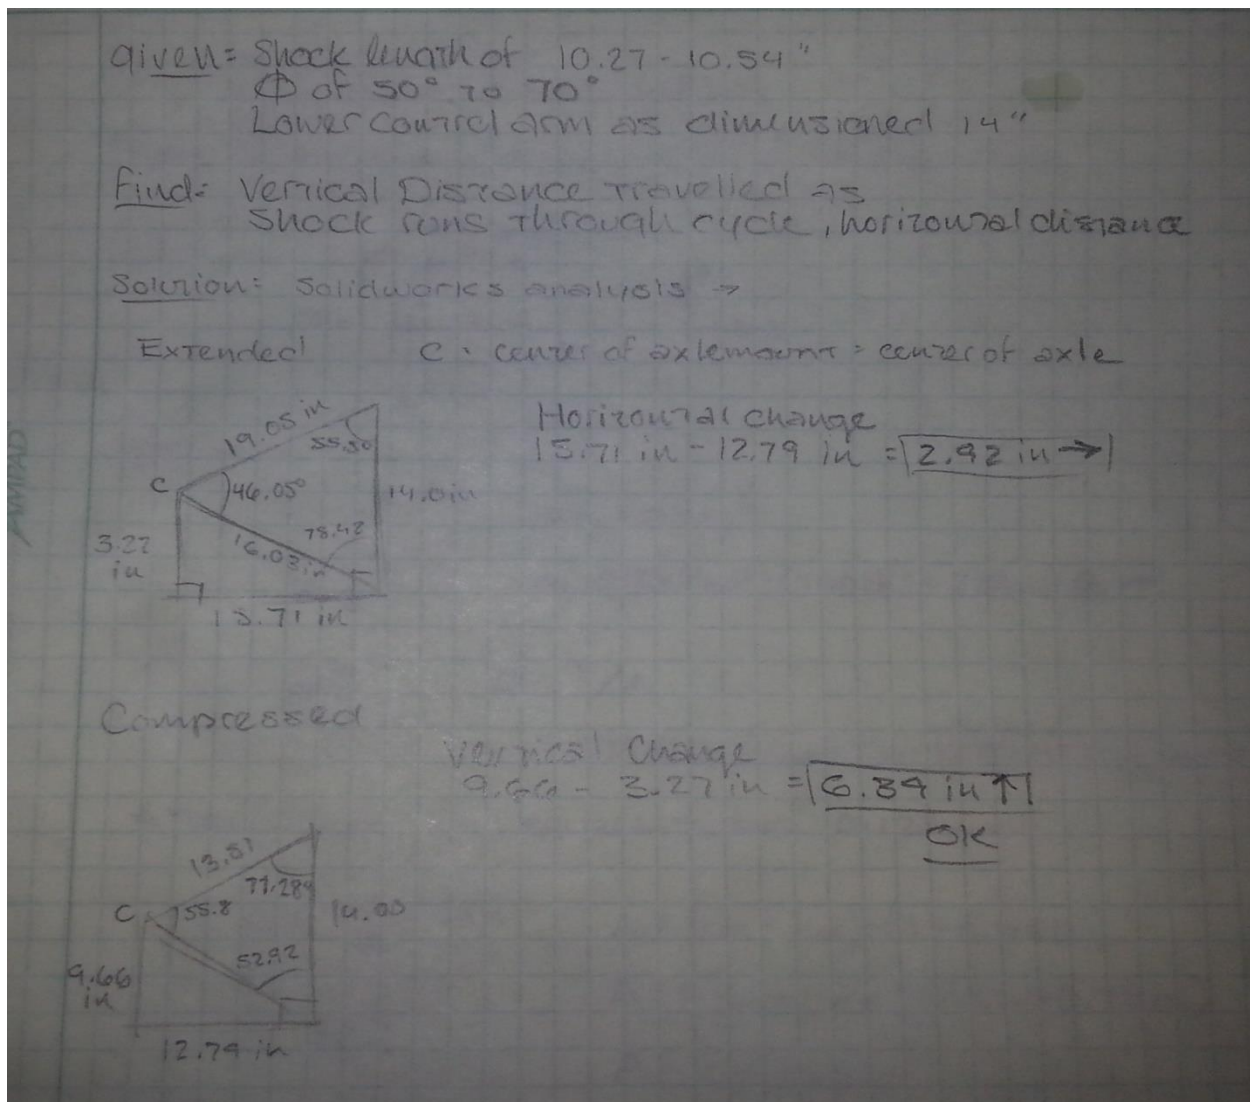 Given: Shock length of 10.27 - 10.54"
Φ of 50° to 70°
Lower control arm as dimensioned 14"
Find: Vertical Distance travelled as
Shock runs through cycle, horizontal distance
Solution: Solidworks analysis →
Extended C = center of axlemount = center of axle
Horizontal change
15.71 in - 12.79 in = 2.92 in →
19.05 in
55.50
C
46.05°
14.0in
78.42
16.03in
3.27
in
15.71 in
Compressed
Vertical Change
9.66 - 3.27 in = 6.39 in ↑
OK
13.51
71.28°
C
55.8
14.00
52.92
9.66
in
12.79 in
AMPAD